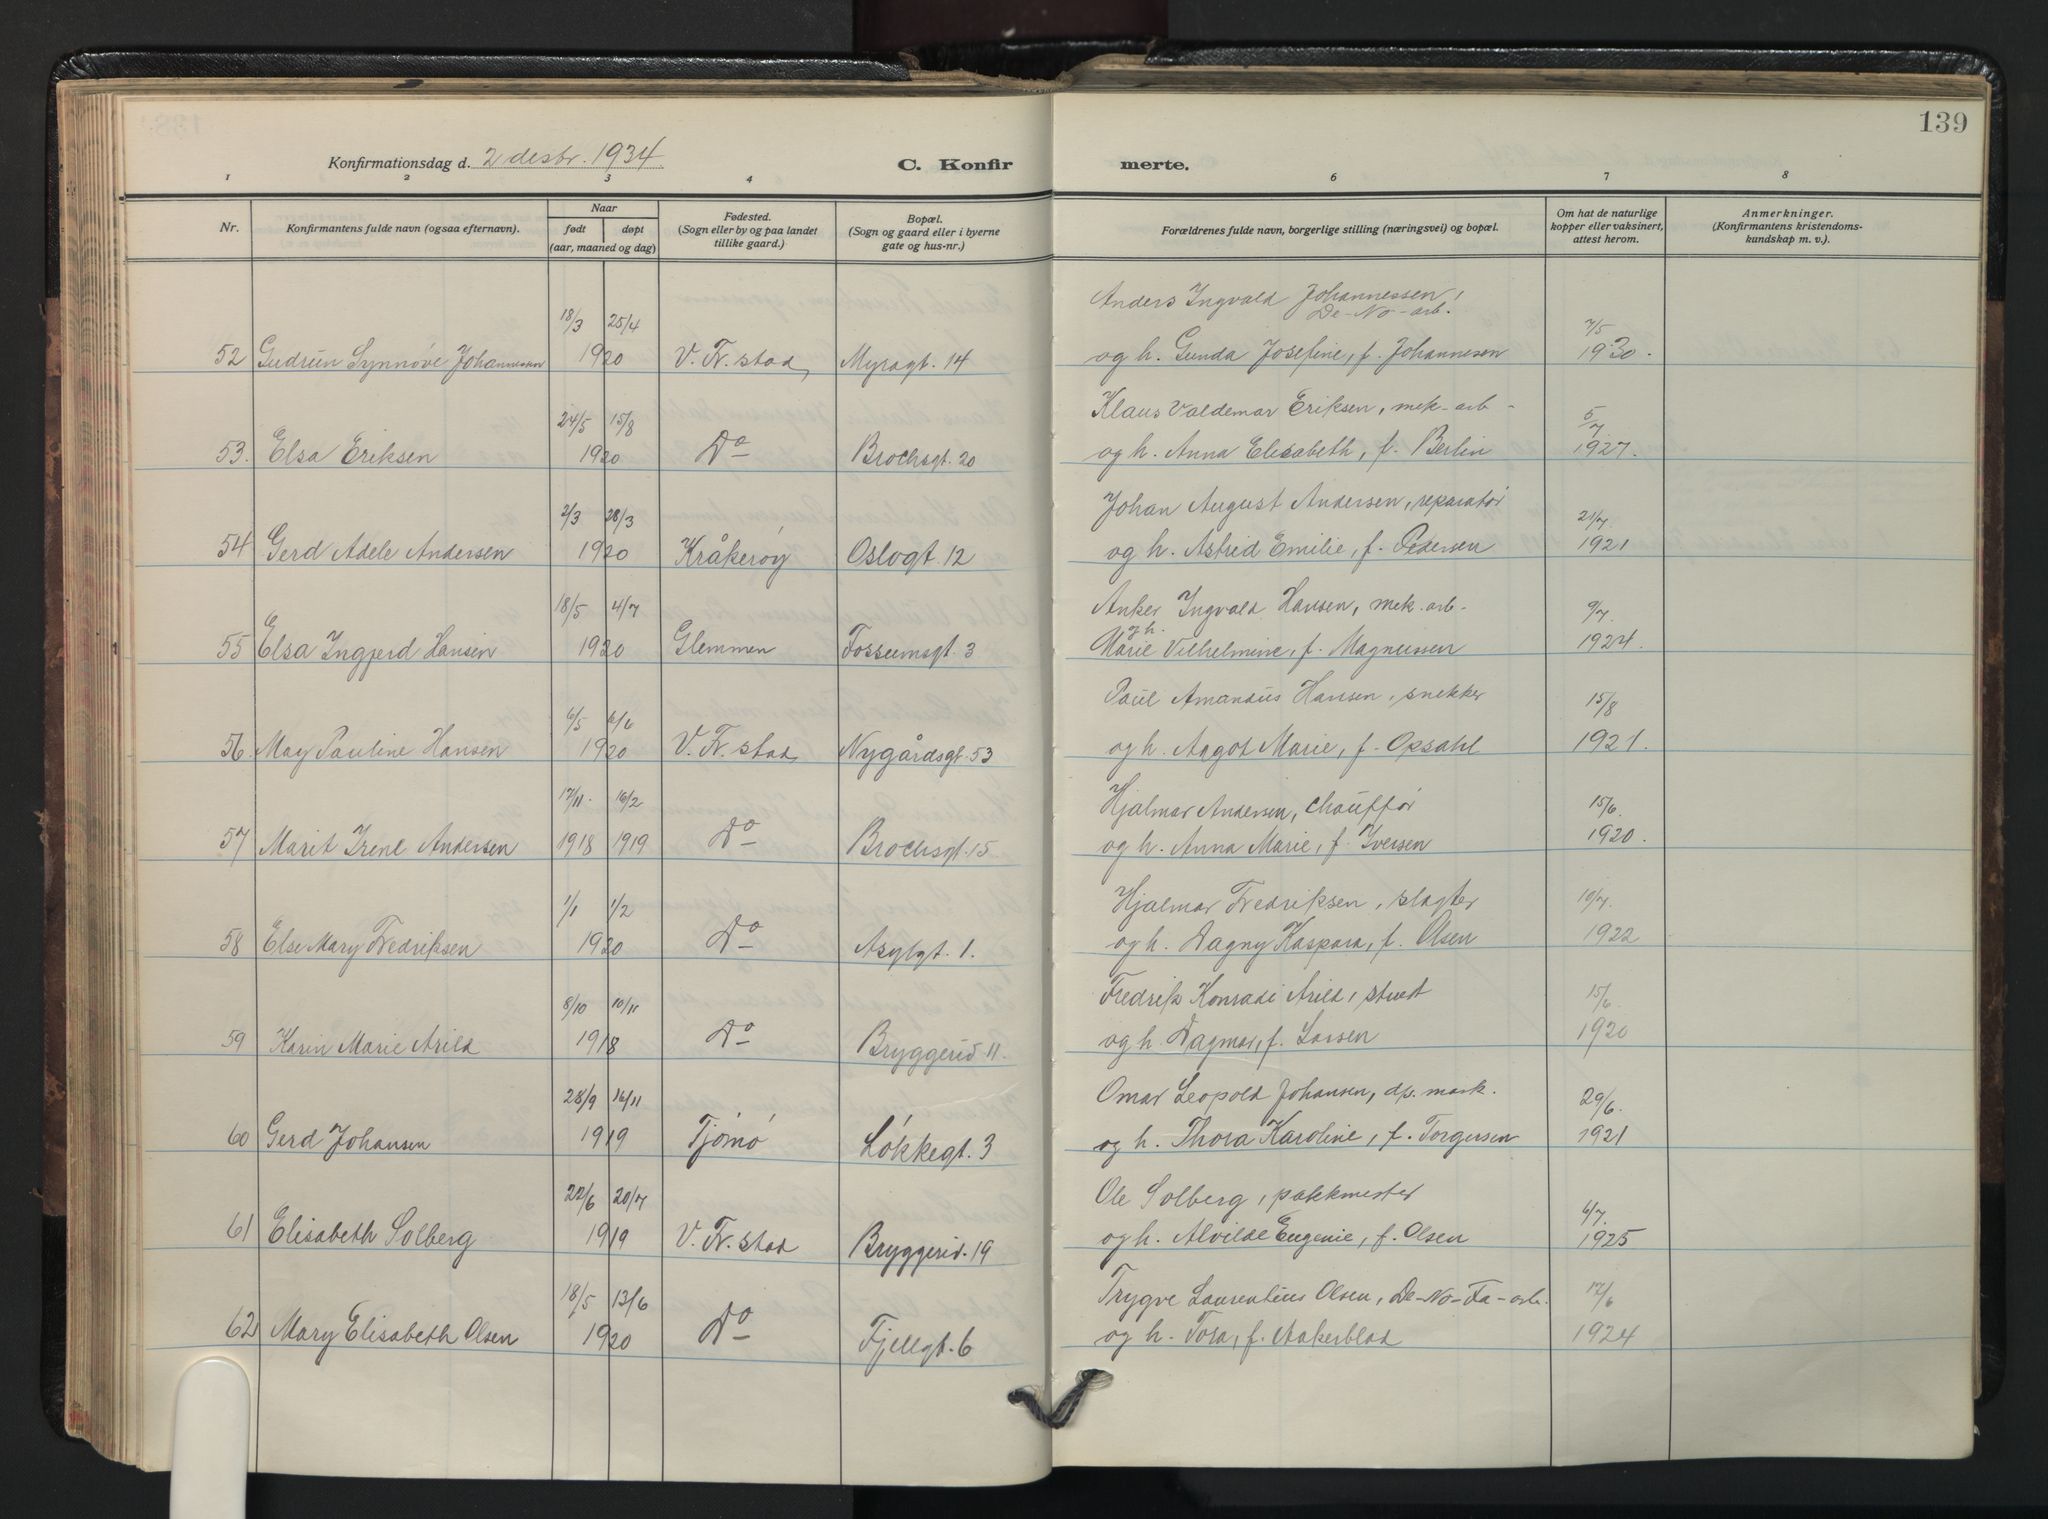 139
Konfirmationsdag d. 2 desbr. 1934
C. Konfir merte.
1 2 3 4 6 7 8
Nr.
Konfirmantens fulde navn (ogsaa efternavn).
Naar
født døpt
(aar, maaned og dag)
Fødested.
(Sogn eller by og paa landet
tillike gaard.)
Bopæl.
(Sogn og gaard eller i byerne
gate og hus-nr.)
Forældrenes fulde navn, borgerlige stilling (næringsvei) og bopæl.
Om hat de naturlige
kopper eller vaksinert,
attest herom.
Anmerkninger.
(Konfirmantens kristendoms-
kundskap m. v.).
Anders Ingvald Johannessen,
18/3 25/4 De-No-arb. 7/5
52 Gudrun Synnøve Johannessen 1920 V. Fr. stad Myragt. 14 og h. Gunda Josefine, f. Johannesen 1930.
24/5 15/8 Klaus Valdemar Eriksen, mek-arb- 5/7
53. Elsa Eriksen 1920 Do Brochsgt. 20 og h. Anna Elisabeth, f. Berlin 1927.
2/3 28/3 Johan August Andersen, reparatør 21/7.
54 Gerd Adele Andersen 1920 Kråkerøy Oslogt. 12 og h. Astrid Emilie, f. Pedersen 1921
18/5 4/7 Anker Ingvald Hansen, mek. arb- 9/7
55 Elsa Ingjerd Hansen 1920 Glemmen Fossumsgt. 3 og h. Marie Vilhelmine, f. Magnussen 1924.
6/5 6/6 Paul Amandus Hansen, snekker 15/8
56. May Pauline Hansen 1920 V. Fr. stad, Nygårdsgt. 53 og h. Aagot Marie, f. Opsahl 1921.
17/11. 16/2 Hjalmar Andersen, chauffør 15/6
57 Marit Irene Andersen 1918 1919 Do Brochsgt. 15 og h. Anna Marie, f. Iversen 1920.
1/1 1/2 Hjalmar Fredriksen, slagter 19/7.
58 Else Mary Fredriksen 1920 Do Asylgt. 1. og h. Dagny Kaspara, f. Olsen 1922
8/10 10/11 Fredrik Konradi Arild, stuert 15/6
59 Karin Marie Arild 1918 Do Bryggerid 11. og h. Dagmar, f. Larsen 1920
28/9 16/11 Omar Leopold Johansen, dp. mask. 29/6.
60 Gerd Johansen 1919 Tjømø Løkkegt. 3 og h. Thora Karoline, f. Torgersen 1921
22/6 20/7 Ole Solberg, pakkmester 6/7.
61 Elisabeth Solberg 1919 V. Fr. stad Bryggerid. 19 og h. Alvilde Eugenie, f. Olsen 1925
18/5 13/6 Trygve Laurentius Olsen, De-No-Fa-arb. 17/6
62 Mary Elisabeth Olsen 1920 Do Fjellgt. 6 og h. Tora, f. Aakerblad 1924